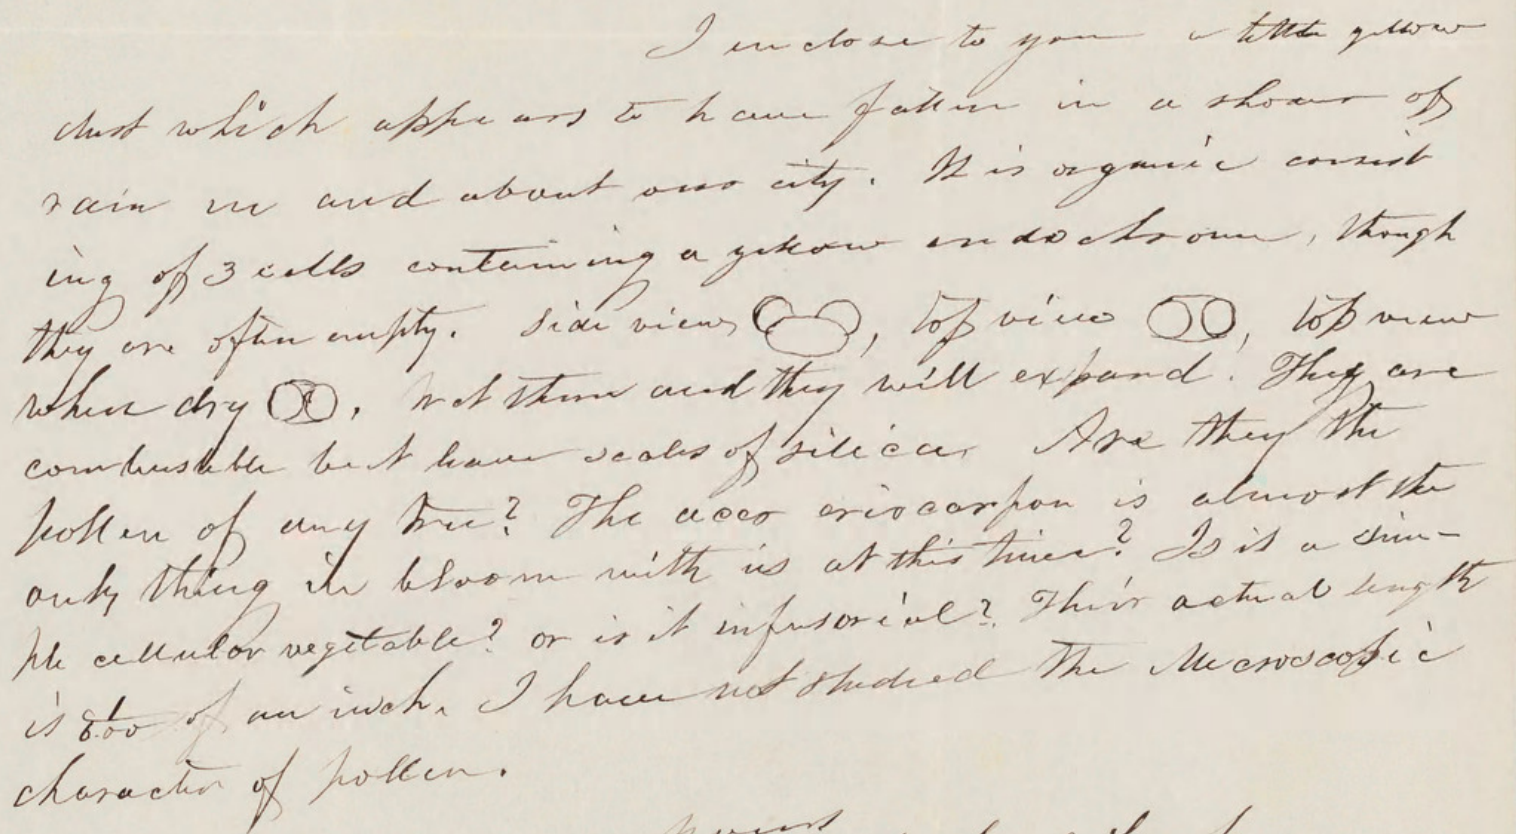 I enclose to you a little yellow
dust which appears to have fallen in a shower of
rain in and about our city. It is organic consist
ing of 3 cells containing a yellow endochrome, though
they are often empty. Side view, top view, top view
when dry. Wet them and they will expand. They are
combustable but have scales of silica. Are they the
pollen of any tree? The acer eriocarpon is almost the
only thing in bloom with us at this time? Is it a sim-
ple cellular vegetable? or is it infusorial? Their actual length
is 1/800 of an inch. I have not studied the Mecroscopic
character of pollen.